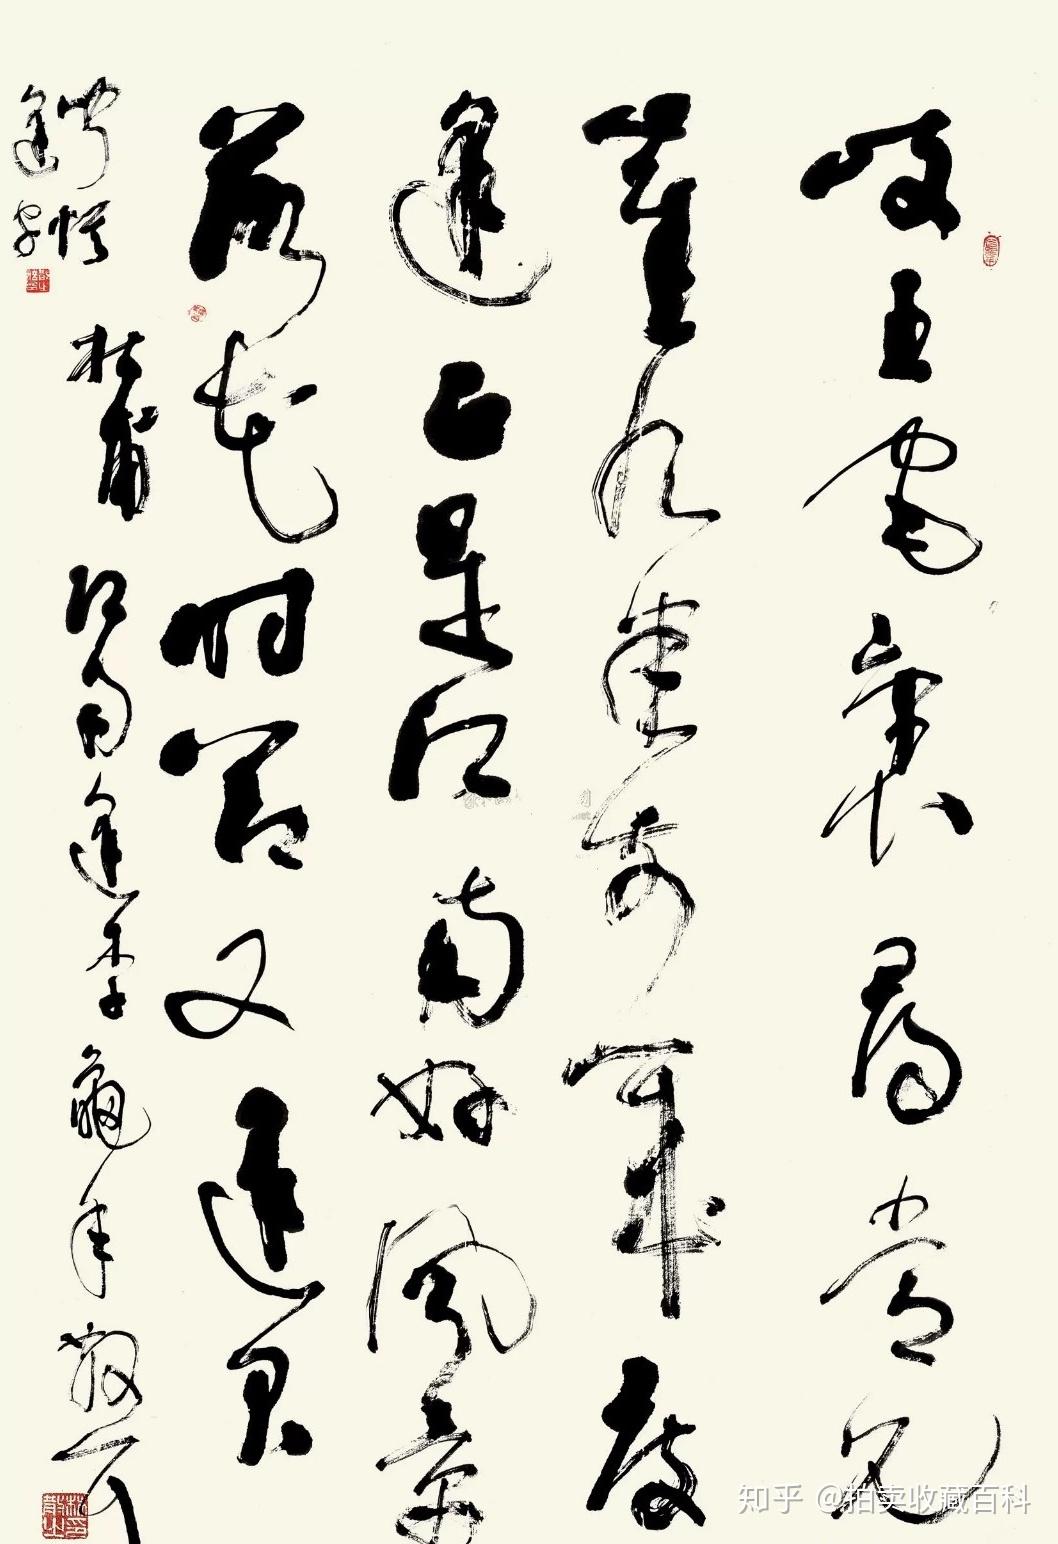 岐王宅裏尋常見
崔九堂前幾度
逢正是江南好風景
落花時節又逢君
聞悞
逢字
杜甫江南逢李龜年 散耳
知乎 @拍卖收藏百科